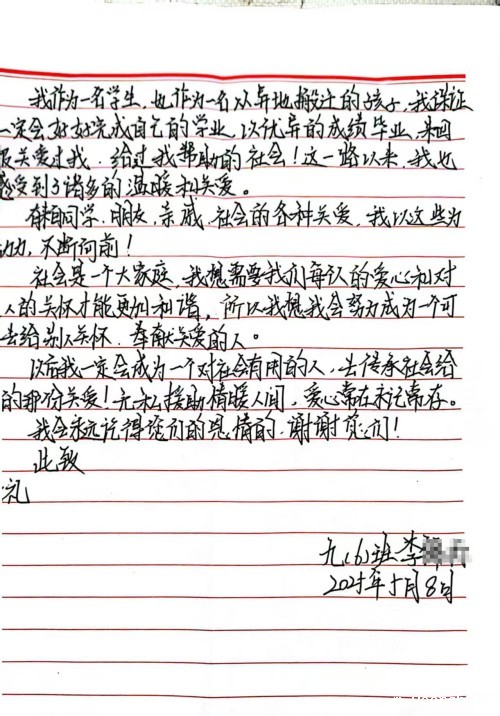 我作为一名学生,也作为一名从异地搬迁的孩子,我保证
一定会好好完成自己的学业,以优异的成绩毕业,来回
报关爱过我、给过我帮助的社会!这一路以来,我也
感受到了诸多的温暖和关爱。
有来自同学、朋友、亲戚、社会的各种关爱,我以这些为
动力,不断向前!
社会是一个大家庭,我想需要我们每个人的爱心和对
人的关怀才能更加和谐,所以我想我会努力成为一个可
去给别人关怀、奉献关爱的人。
以后我一定会成为一个对社会有用的人,去传承社会给
的那份关爱!无私援助情暖人间,爱心常在永记常存。
我会永远记得您们的恩情的,谢谢您们!
此致
礼
九(6)班 李
2025年5月8日